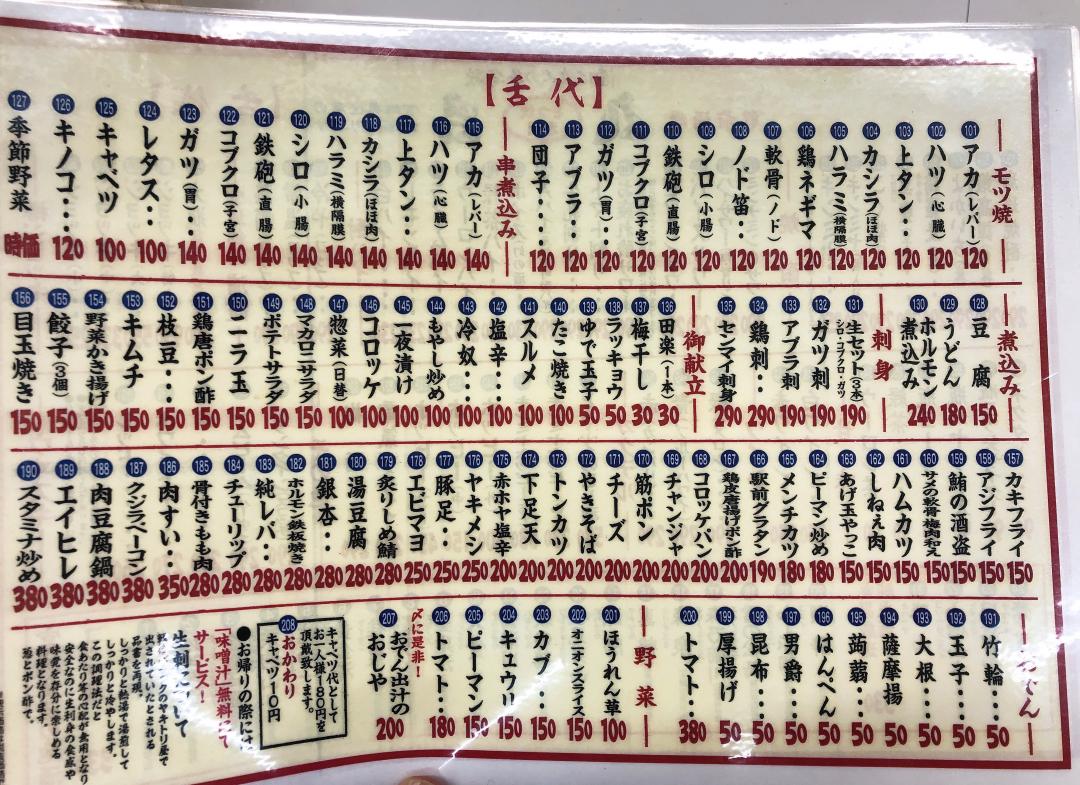 【舌代】
モツ焼
101 アカ(レバー) 120
102 ハツ(心臓) 120
103 上タン・・ 120
104 カシラ(ほほ肉) 120
105 ハラミ(横隔膜) 120
106 鶏ネギマ 120
107 軟骨(ノド) 120
108 ノド笛・・ 120
109 シロ(小腸) 120
110 鉄砲(直腸) 120
111 コブクロ(子宮) 120
112 ガツ(胃)・・ 120
113 アブラ・・ 120
114 団子・・・ 120
串煮込み
115 アカ(レバー) 140
116 ハツ(心臓) 140
117 上タン・・ 140
118 カシラ(ほほ肉) 140
119 ハラミ(横隔膜) 140
120 シロ(小腸) 140
121 鉄砲(直腸) 140
122 コブクロ(子宮) 140
123 ガツ(胃)・・ 140
124 レタス・・ 100
125 キャベツ 100
126 キノコ・・・ 120
127 季節野菜 時価
煮込み
128 豆腐 150
129 うどん 180
130 ホルモン煮込み 240
刺身
131 生セット(3本) シロ・コブクロ・ガツ 190
132 ガツ刺 190
133 アブラ刺 190
134 鶏刺・・ 290
135 センマイ刺身 290
御献立
136 田楽(1本) 30
137 梅干し 30
138 ラッキョウ 50
139 ゆで玉子 50
140 たこ焼き 100
141 スルメ 100
142 塩辛・・・ 100
143 冷奴・・・ 100
144 もやし炒め 100
145 一夜漬け 100
146 コロッケ 100
147 惣菜(日替) 100
148 マカロニサラダ 150
149 ポテトサラダ 150
150 ニラ玉 150
151 鶏唐ポン酢 150
152 枝豆・・・ 150
153 キムチ 150
154 野菜かき揚げ 150
155 餃子(3個) 150
156 目玉焼き 150
157 カキフライ 150
158 アジフライ 150
159 鮪の酒盗 150
160 サメの軟骨梅肉和え 150
161 ハムカツ 150
162 しねぇ肉 150
163 あげ玉やっこ 150
164 ピーマン炒め 180
165 メンチカツ 180
166 駅前グラタン 190
167 鶏皮唐揚げポン酢 200
168 コロッケパン 200
169 チャンジャ 200
170 筋ポン 200
171 チーズ 200
172 やきそば 200
173 トンカツ 200
174 下足天 200
175 赤ホヤ塩辛 200
176 ヤキメシ 250
177 豚足・・ 250
178 エビマヨ 250
179 炙りしめ鯖 280
180 湯豆腐 280
181 銀杏・・ 280
182 ホルモン鉄板焼き 280
183 純レバ・・ 280
184 チューリップ 280
185 骨付きもも肉 280
186 肉すい・・ 350
187 クジラベーコン 380
188 肉豆腐鍋 380
189 エイヒレ 380
190 スタミナ炒め 380
おでん
191 竹輪・・・ 50
192 玉子・・・ 50
193 大根・・・ 50
194 薩摩揚 50
195 蒟蒻・・・ 50
196 はんぺん 50
197 男爵・・・ 50
198 昆布・・・ 50
199 厚揚げ 50
200 トマト・・・ 380
野菜
201 ほうれん草 100
202 オニオンスライス 150
203 カブ・・・ 150
204 キュウリ 150
205 ピーマン 150
206 トマト・・・ 180
〆に是非!
207 おでん出汁のおじや 200
キャベツ代として
お一人様180円を
頂戴致します。
208 おかわり
キャベツ―0円
●お帰りの際には
「味噌汁」無料にて
サービス!
生刺について
出されていたとされる
品書を再現。
しっかりと熱湯で湯煎して
しっかりと冷やします。
この調理法だと
食あたり等の心配が無用となり
安全なのに生刺身の食感や
味覚を存分に楽しめる
料理となります。
葱とポン酢で。